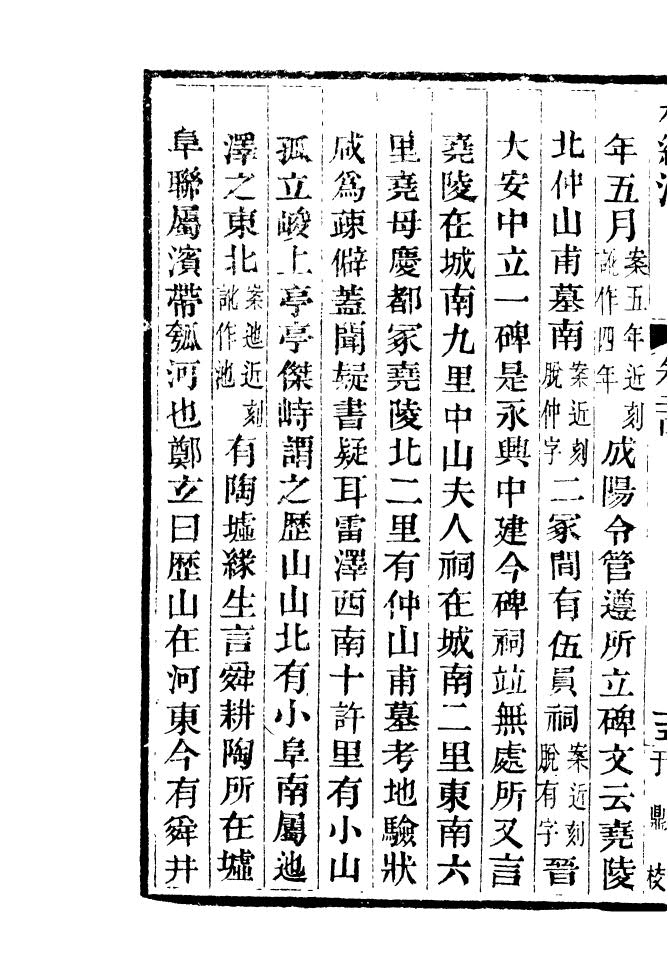 年五月案五年近刻訛作四年成陽令管遵所立碑文云堯陵
北仲山甫墓南案近刻脫仲字二冢間有伍員祠案近刻脫有字晉
大安中立一碑是永興中建今碑祠竝無處所又言
堯陵在城南九里中山夫人祠在城南二里東南六
里堯母慶都冢堯陵北二里有仲山甫墓考地驗狀
咸爲疎僻蓋聞疑書疑耳雷澤西南十許里有小山
孤立峻上亭亭傑峙謂之歴山山北有小阜南屬迆
澤之東北案迆近刻訛作池有陶墟緣生言舜耕陶所在墟
阜聯屬濱帶瓠河也鄭玄曰歴山在河東今有舜井